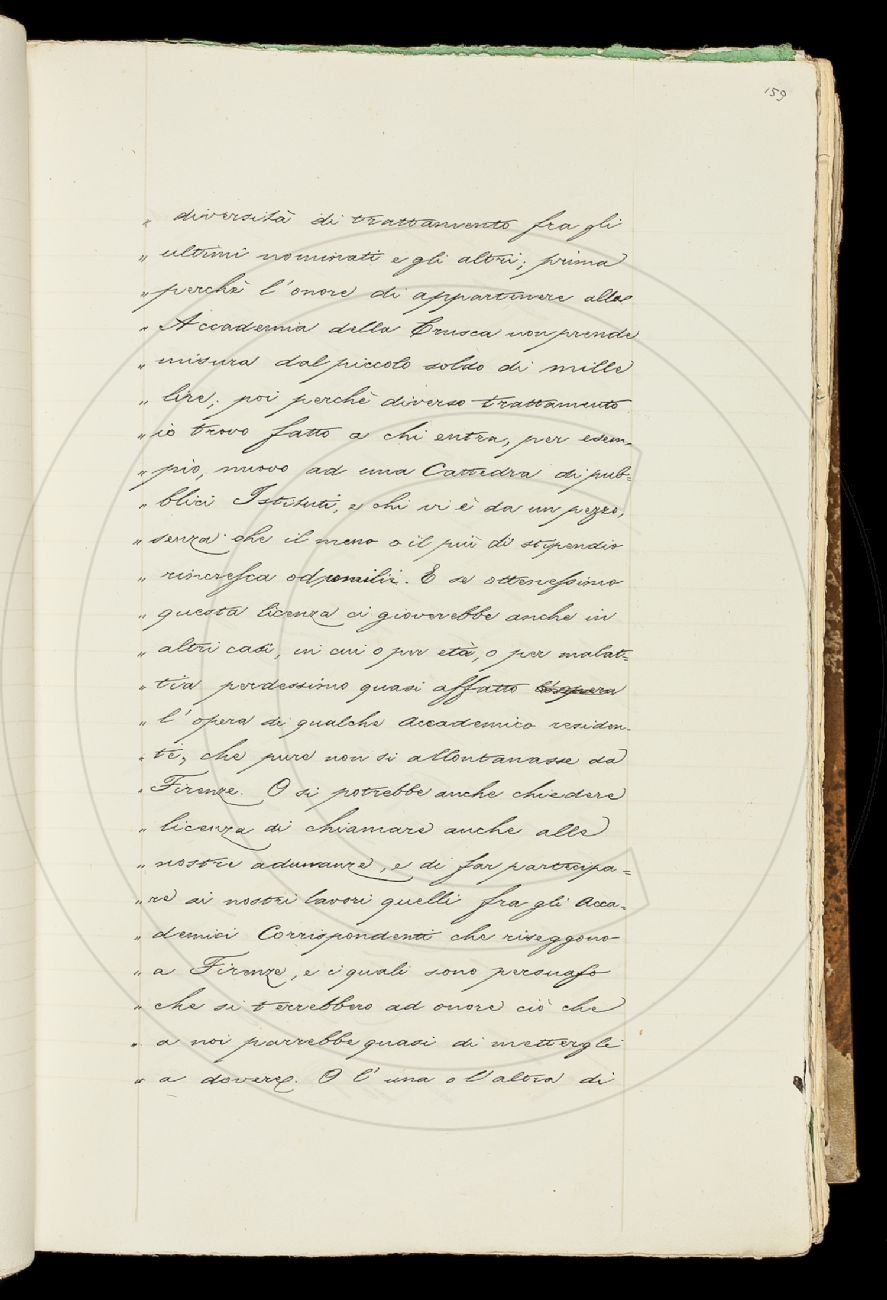 159
" diversità di trattamento fra gli
" ultimi nominati e gli altri; prima
" perchè l'onore di appartenere alla
" Accademia della Crusca non prende
" misura dal piccolo soldo di mille
" lire; poi perchè diverso trattamento
" io trovo fatto a chi entra, per esem-
" pio, nuovo ad una Cattedra di pub=
" blici Istituti, e chi vi è da un pezzo,
" senza che il meno o il più di stipendio
" rincresca od umilii. E se ottenessimo
" questa licenza ci gioverebbe anche in
" altri casi, in cui o per età, o per malat=
" tia perdessimo quasi affatto
" l'opera di qualche Accademico residen-
" te, che pure non si allontanasse da
" Firenze. O si potrebbe anche chiedere
" licenza di chiamare anche alle
" nostre adunanze, e di far partecipa=
" re ai nostri lavori quelli fra gli Acca=
" demici Corrispondenti che riseggono
" a Firenze, e i quali sono persuaso
" che si terrebbero ad onore ciò che
" a noi parrebbe quasi di mettergli
" a dovere. O l'una o l'altra di